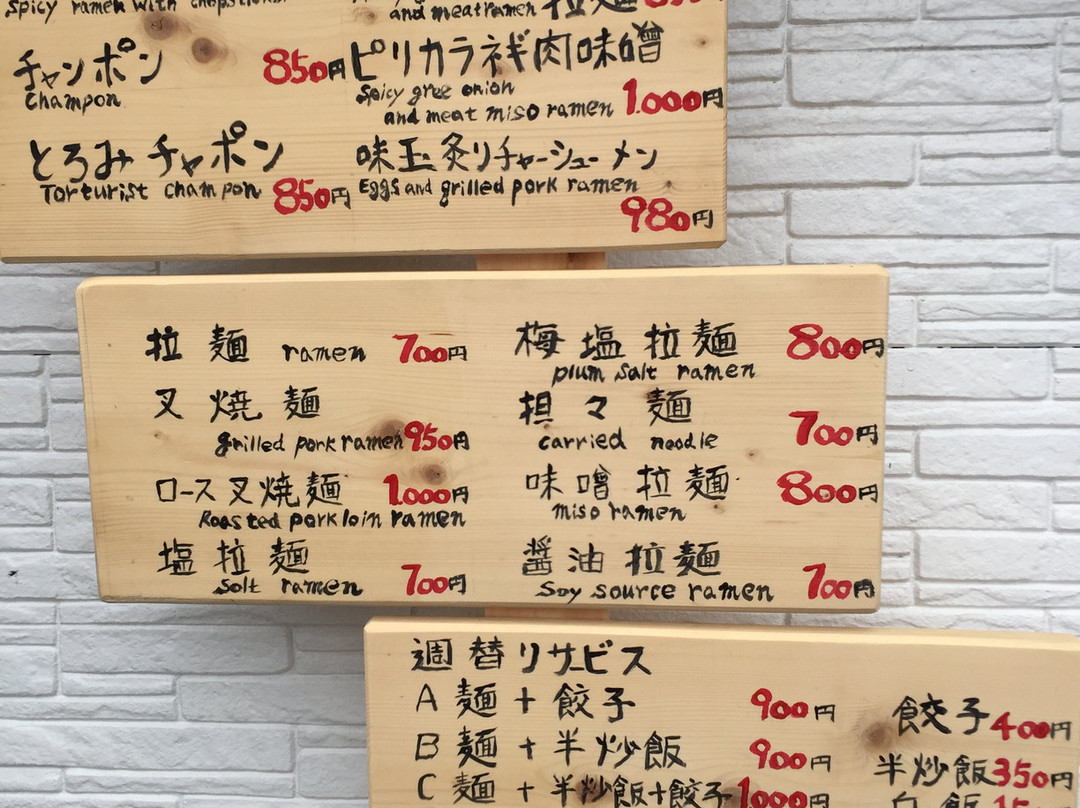 spicy ramen with chopstions
チャンポン 850円
champon
とろみチャポン
Torturist champon 850円
and meat ramen 拉麺
ピリカラネギ肉味噌
Spicy gree onion
and meat miso ramen 1.000円
味玉炙リチャーシューメン
Eggs and grilled pork ramen
980円
拉麺 ramen 700円
叉焼麺
grilled pork ramen 950円
ロース叉焼麺 1.000円
Roasted pork loin ramen
塩拉麺
solt ramen 700円
梅塩拉麺 800円
plum salt ramen
担々麺
carried noodle 700円
味噌拉麺 800円
miso ramen
醤油拉麺
Soy source ramen 700円
週替リサービス
A 麺+餃子 900円
B 麺+半炒飯 900円
C 麺+半炒飯+餃子 1000円
餃子 400円
半炒飯 350円
白飯